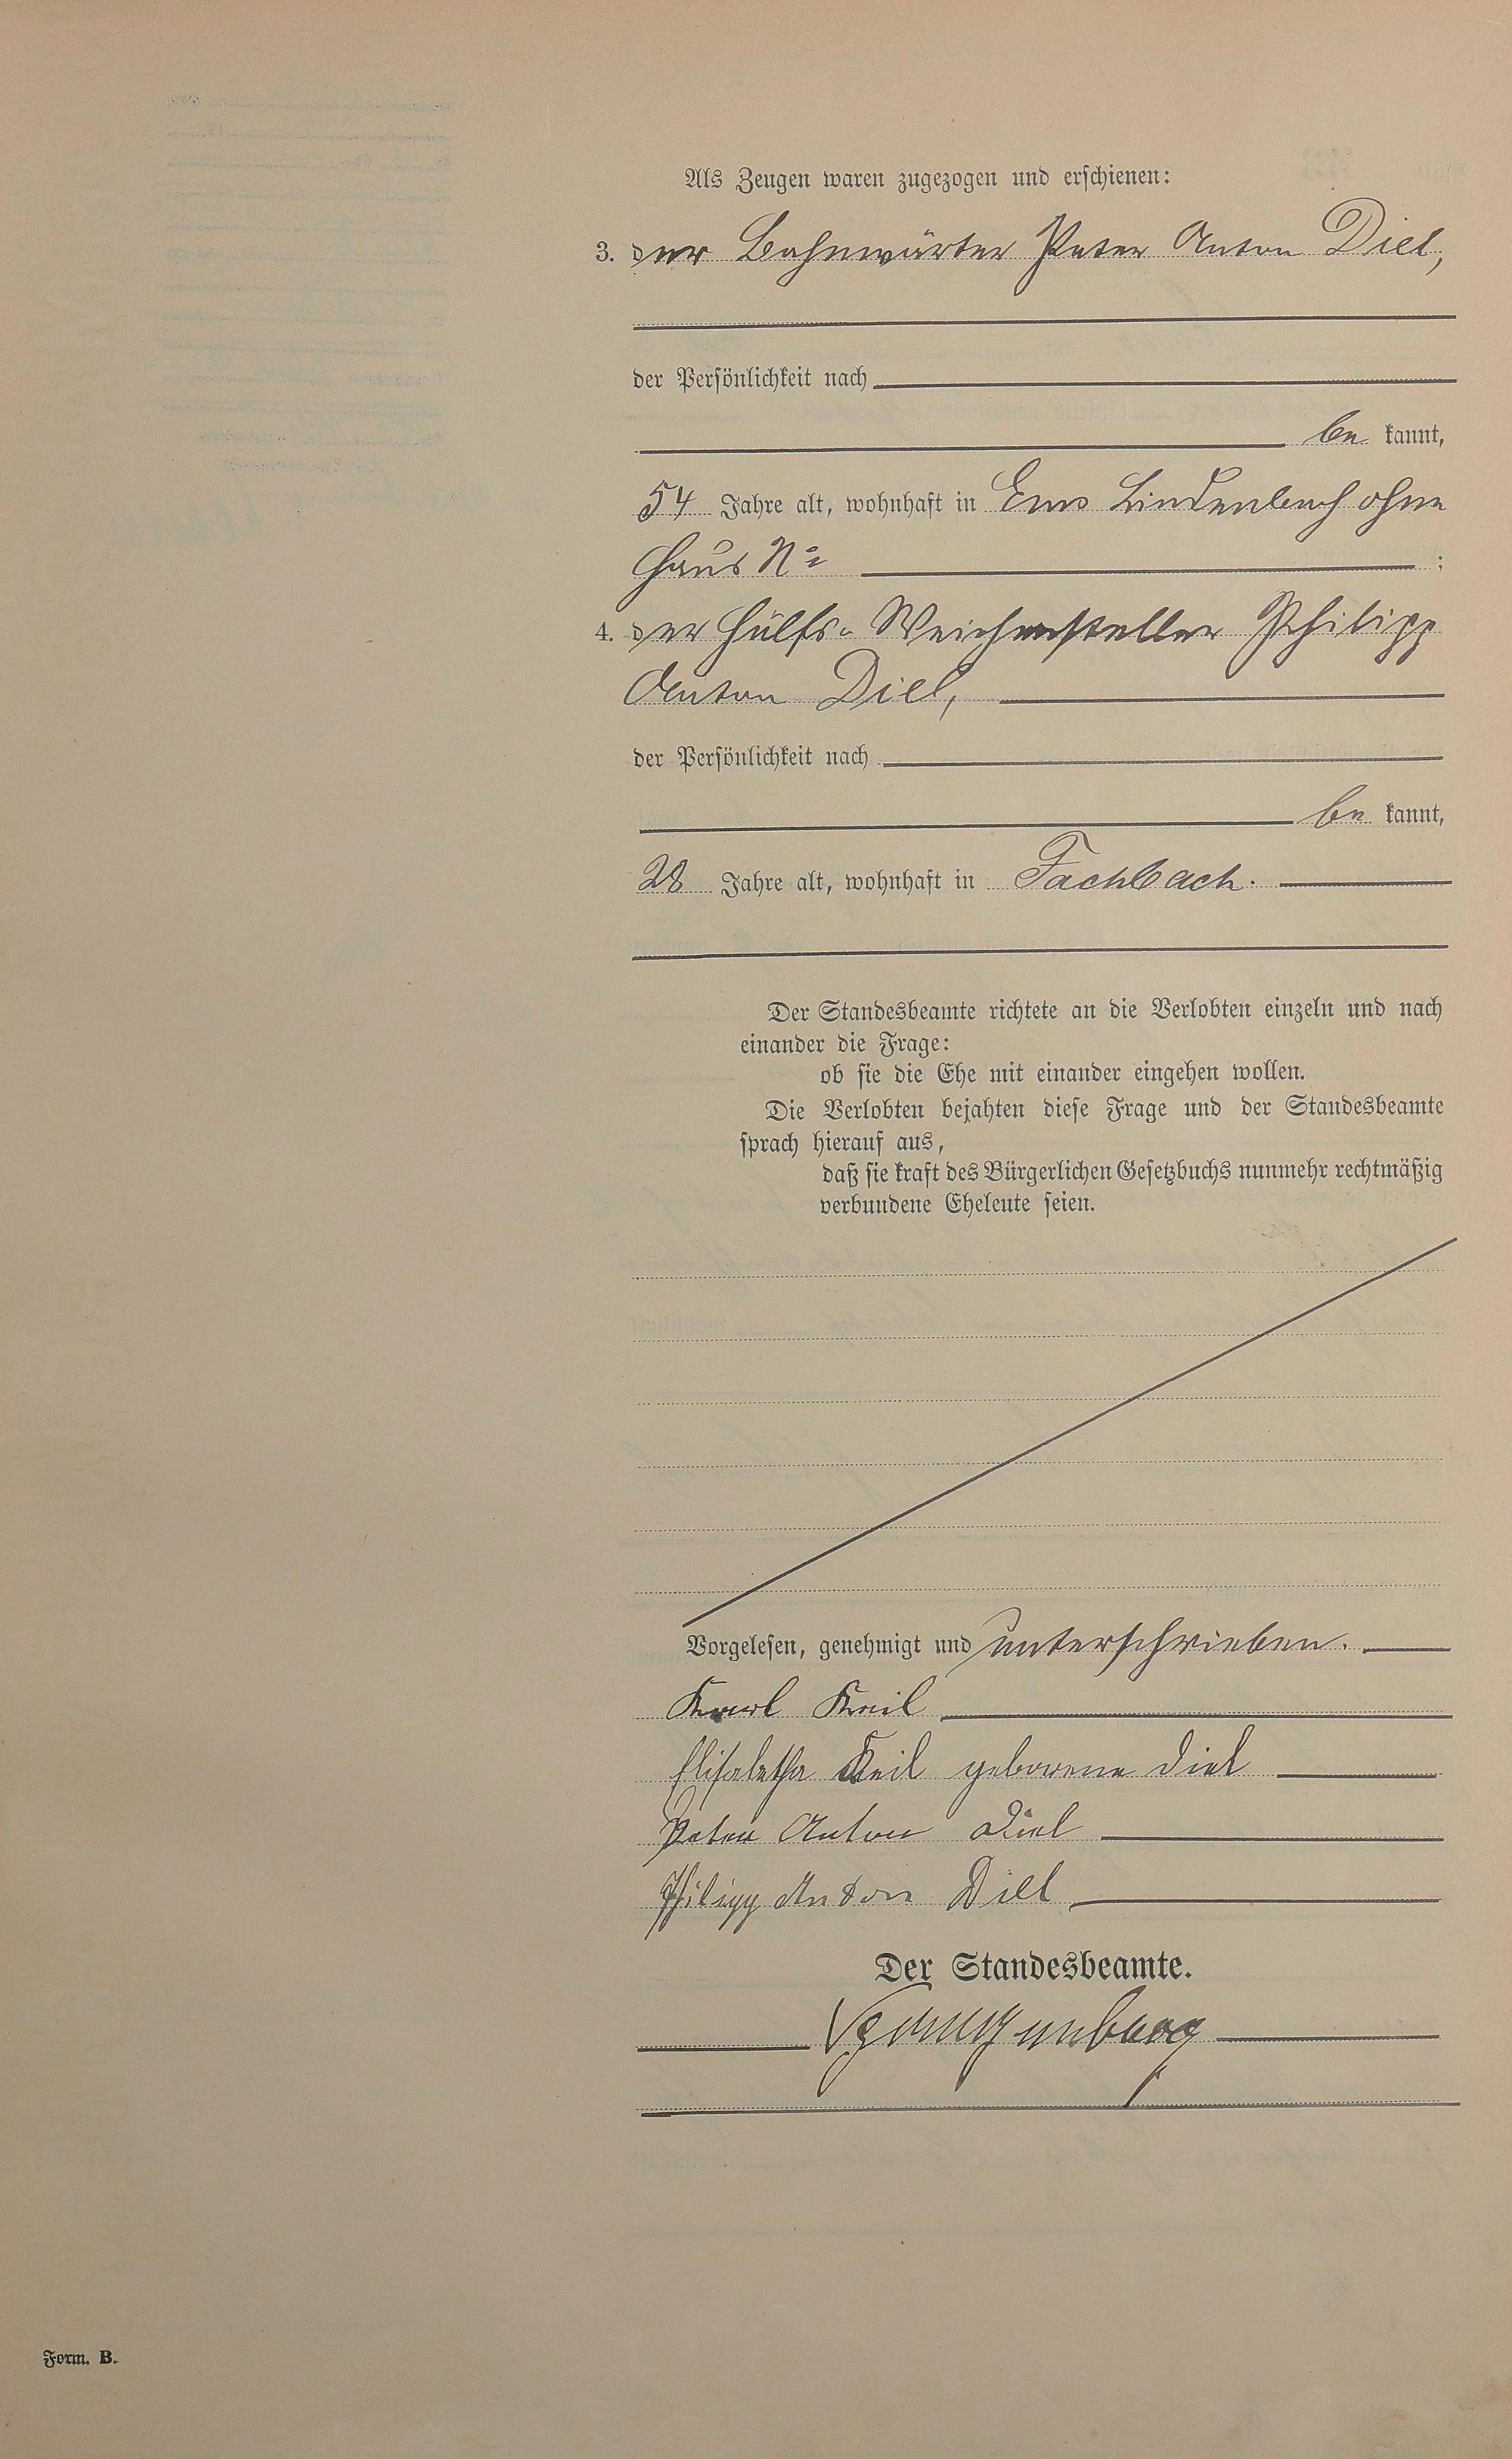 Als Zeugen waren zugezogen und erschienen:
3. der Bahnwärter Peter Anton Diel,
der Persönlichkeit nach
be kannt,
54 Jahre alt, wohnhaft in Ems Lindenbach ohne
Haus No
:
4. der Hülfs-Weichensteller Philipp
Anton Diel,
der Persönlichkeit nach
be kannt,
28 Jahre alt, wohnhaft in Fachbach.
Der Standesbeamte richtete an die Verlobten einzeln und nach
einander die Frage:
ob sie die Ehe mit einander eingehen wollen.
Die Verlobten bejahten diese Frage und der Standesbeamte
sprach hierauf aus,
daß sie kraft des Bürgerlichen Gesetzbuchs nunmehr rechtmäßig
verbundene Eheleute seien.
Vorgelesen, genehmigt und unterschrieben.
Karl Keil
Elisabetha Keil geborene Diel
Peter Anton Diel
Philipp Anton Diel
Der Standesbeamte.
Form. B.